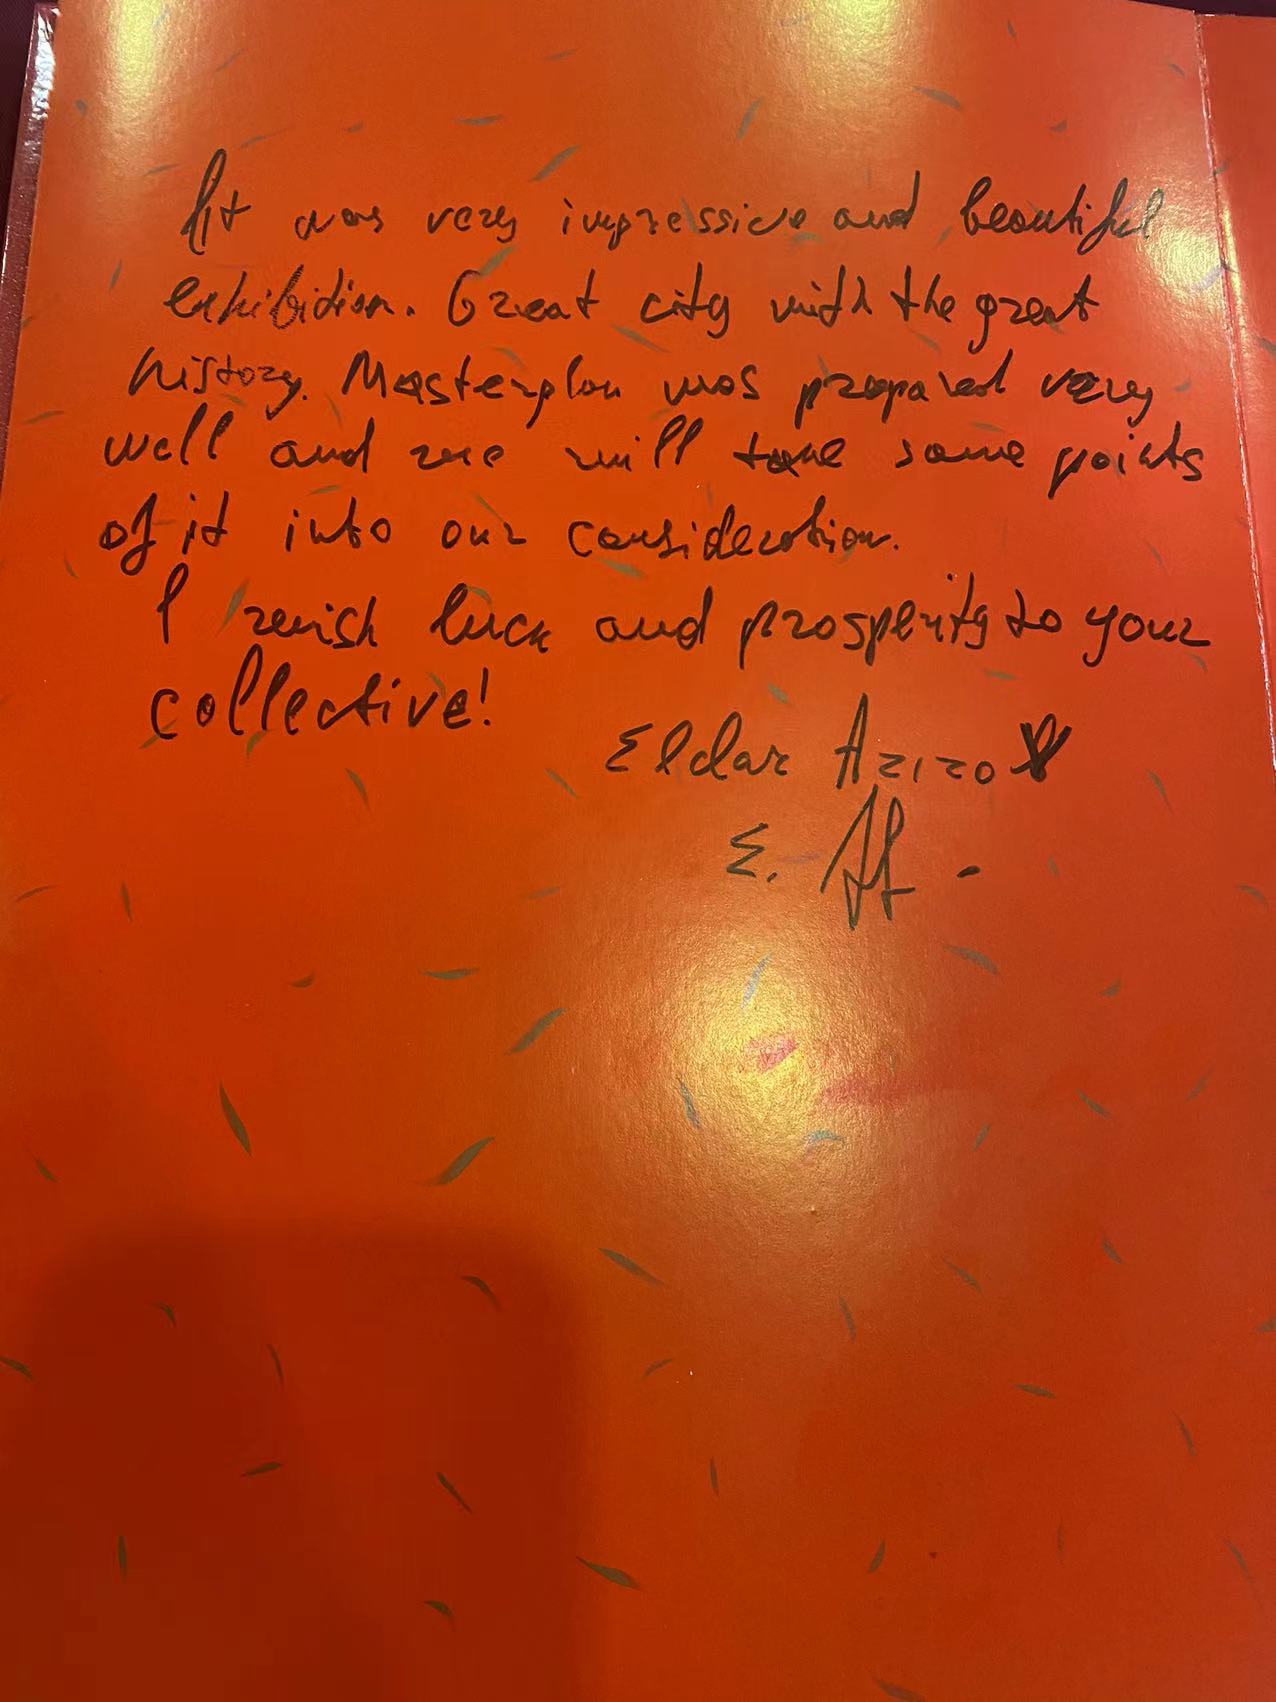 It was very impressive and beautiful
exhibition. Great city with the great
history. Masterplan was prepared very
well and we will take some points
of it into our consideration.
I wish luck and prosperity to your
collective!
Eldar Azizov
E.